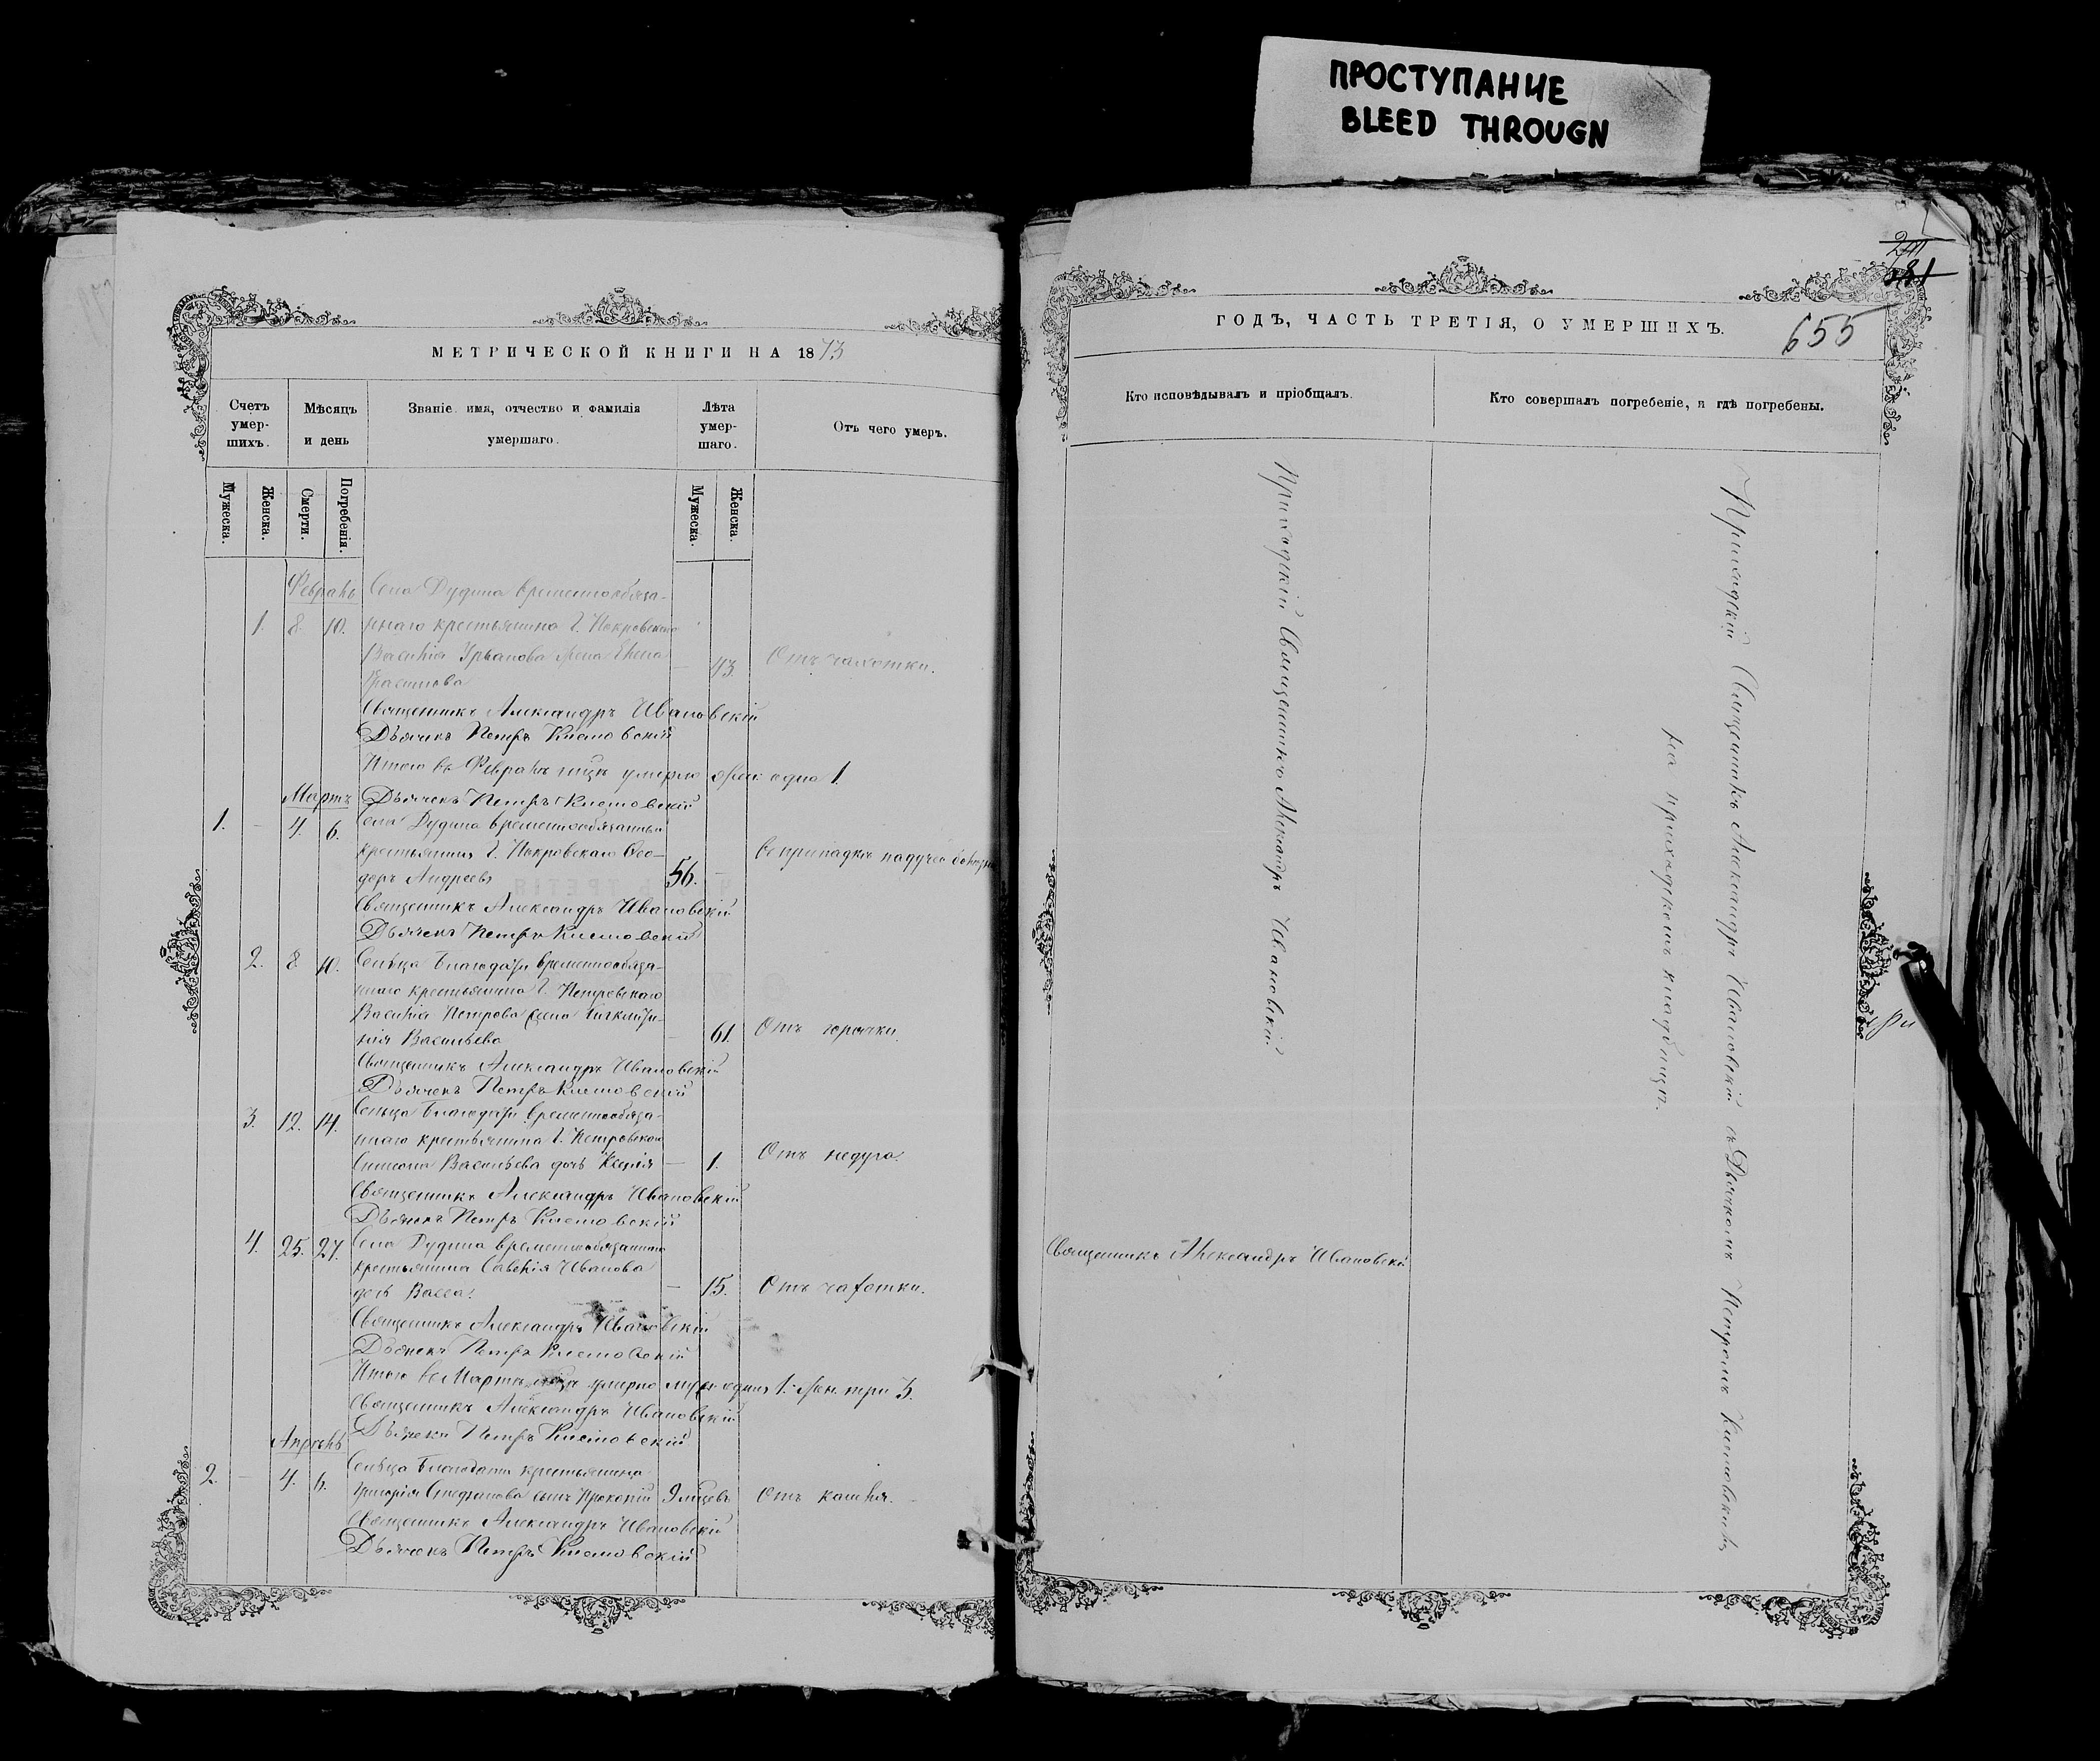 ПРОСТУПАНИЕ
BLEED THROUGN
МЕТРИЧЕСКОЙ КНИГИ НА 1873
Счетъ умер-шихъ.
Мѣсяцъ и день
Званіе имя, отчество и фамилія умершаго.
Лѣта умер-шаго.
Отъ чего умеръ.
Мужеска.
Женска.
Смерти.
Погребенія.
Мужеска.
Женска.
Февраль
Села Дудина временнообяза-
1. 8. 10. ннаго крестьянина Г. Покровскаго
Василія Урванова жена Елена
— 43. Отъ чахотки.
Священникъ Александръ Ивановскій
Дьячекъ Петръ
Итого въ Февралѣ умерло жен: одна 1
Мартъ
Дьячекъ Петръ
1. — 4. 6. Села Дудина временнообязанный
крестьянинъ Г. Покровскаго Ѳео-
доръ Андреевъ
56. — въ припадкѣ падучей болѣзни
Священникъ Александръ Ивановскій
Дьячекъ Петръ
2. 8 10. Сельца Благодати временнообяза-
ннаго крестьянина Г.
Василія Петрова
Васильева
— 61. Отъ горячки.
Священникъ Александръ Ивановскій
Дьячекъ Петръ
3. 12. 14. Сельца Благодати временнообяза-
ннаго крестьянина Г.
Симеона Васильева дочь Ксенія — 1. Отъ недуга.
Священникъ Александръ Ивановскій
Дьячекъ Петръ
4. 25. 27. Села Дудина временнообязаннаго
крестьянина Савелія Иванова
дочь Васса.
— 15. Отъ чахотки.
Священникъ Александръ Ивановскій
Дьячекъ Петръ
Итого въ Мартѣ умерло муж: одинъ 1. Жен. три 3.
Священникъ Александръ Ивановскій
Дьячекъ Петръ
Апрѣль
Сельца Благодати крестьянина
2. — 4. 6. Григорія Стефанова сынъ Прокопій 9 мѣсцевъ Отъ кашля.
Священникъ Александръ Ивановскій
Дьячекъ Петръ
ГОДЪ, ЧАСТЬ ТРЕТІЯ, О УМЕРШИХЪ.
655
Кто исповѣдывалъ и пріобщалъ.
Кто совершалъ погребеніе, и гдѣ погребены.
Приходскій Священникъ Александръ Ивановскій
Приходскій Священникъ Александръ Ивановскій съ Дьячкомъ Петромъ
на приходскомъ кладбищѣ.
Священникъ Александръ Ивановскій